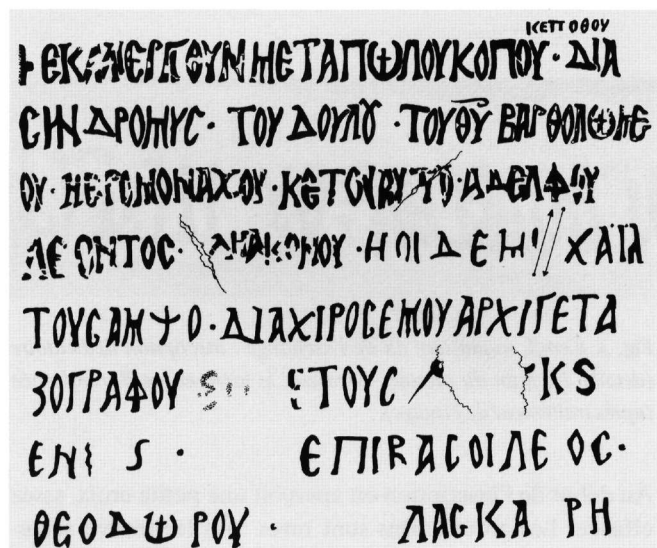 ΚΕΠΟΘΟΥ
ΜΕΤΑΠΩΛΟΥΚΟΠΟΥ· ΔΙΑ
CΗΝΔΡΟΜΥC· ΤΟΥ ΔΟΥΛȢ · ΤΟΥ ΘΥ ΒΑΡΘΟΛΩΜΕ
ΟΥ· ΗΕΡΟΜΟΝΑΧΟΥ· ΚΕ ΤΟΥ ΑΥΤΟΥ· ΑΔΕΛΦΟΥ
ΛΕΟΝΤΟC· ΔΗΑΚΟΝΟΥ· ΗΠΙΔΕΗ ΧΑΪΛ
ΤΟΥCΑΜΨΟ· ΔΙΑΧΙΡΟCΕΜΟΥΑΡΧΙΓΕΤΑ
ΖΟΓΡΑΦΟΥ ΕΤΟΥC ΚS
ΕΠΙΒΑCΟΙΛΕΟC·
ΘΕΟΔΩΡΟΥ· ΛΑCΚΑΡΗ